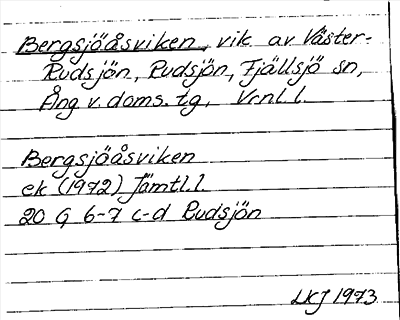 Bergsjöåsviken, vik av Väster-
Rudsjön, Rudsjön, Fjällsjö sn,
Ång v. doms. tg, Vrnl. l.
Bergsjöåsviken
ek (1972) Jämtl. l.
20 G 6-7 c-d Rudsjön
LKJ 1973